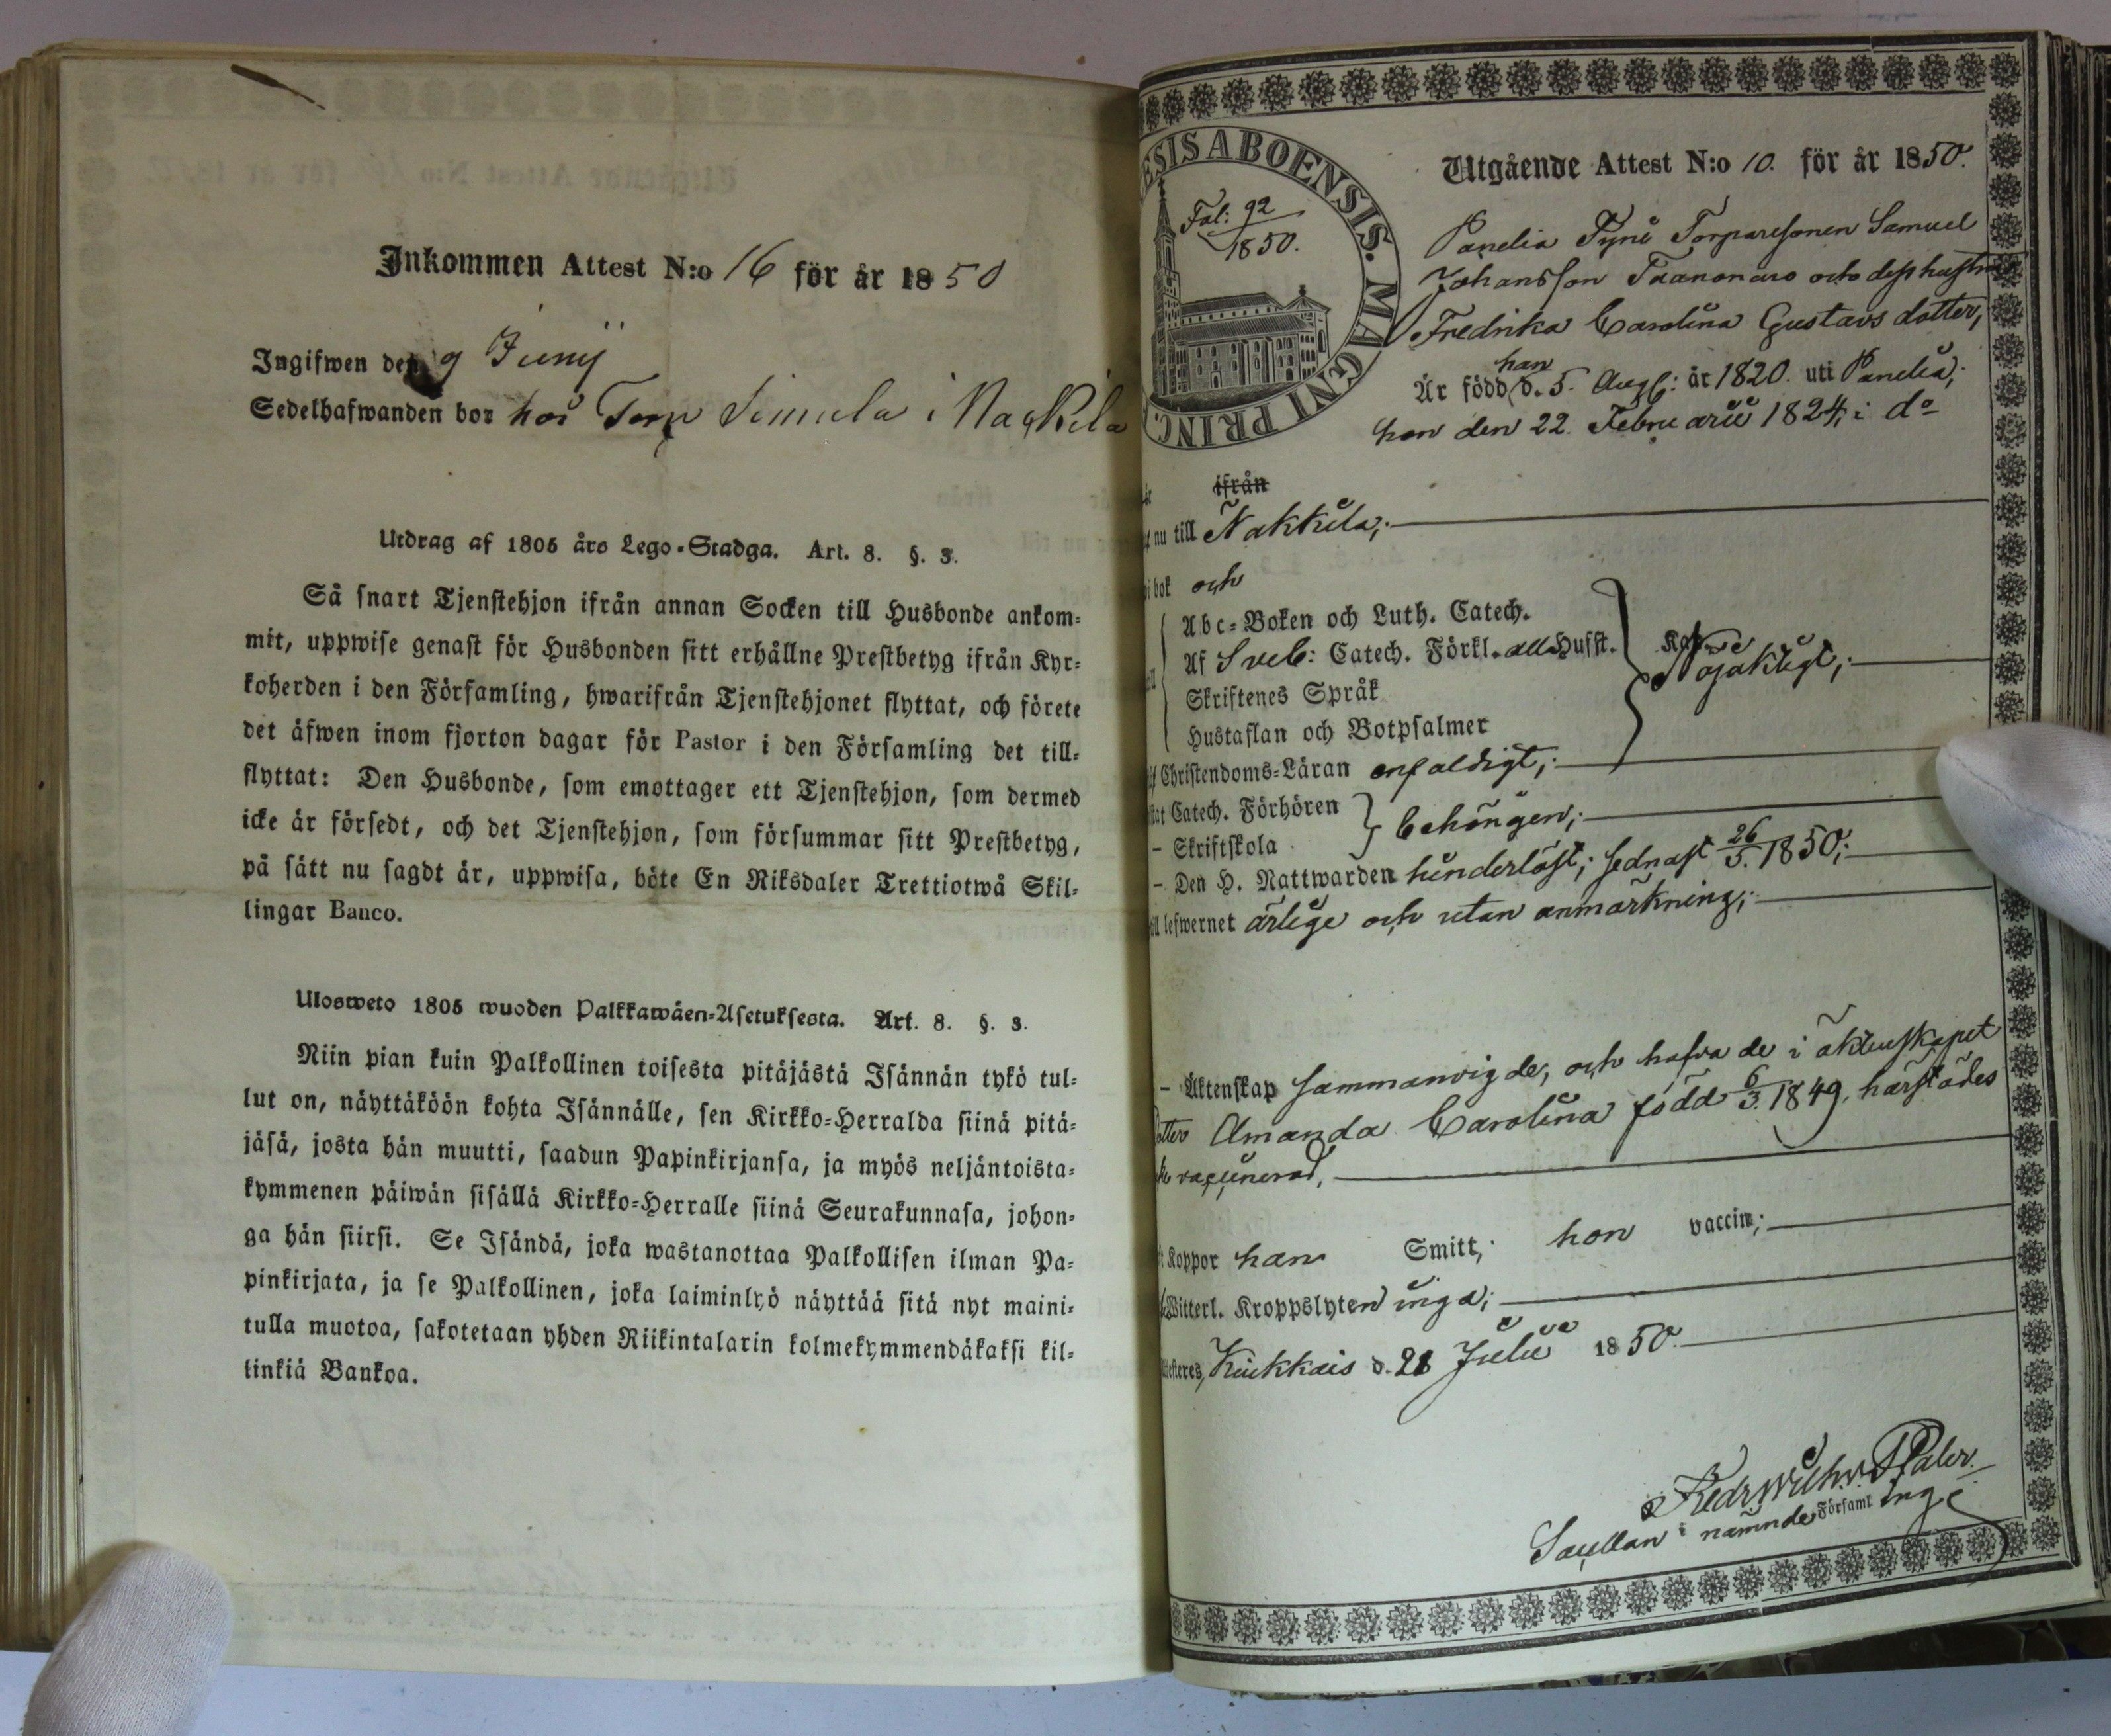 Inkommen Attest N:o 16 för år 1850
Ingifwen den 9 Junij
Sedelhafwanden bor hos Torp Simula i Nackila
Utdrag af 1805 års Lego-Stadga. Art. 8. §. 3.
Så snart Tjenstehjon ifrån annan Socken till Husbonde ankom-
mit, uppwise genast för Husbonden sitt erhållne Prestbetyg ifrån Kyr-
koherden i den Församling, hwarifrån Tjenstehjonet flyttat, och förete
det äfwen inom fjorton dagar för Pastor i den Församling det till-
flyttat: Den Husbonde, som emottager ett Tjenstehjon, som dermed
icke är försedt, och det Tjenstehjon, som försummar sitt Prestbetyg,
på sätt nu sagdt är, uppwisa, böte En Riksdaler Trettiotwå Skil-
lingar Banco.
Ulosweto 1805 wuoden Palkkawäen-Asetuksesta. Art. 8. §. 3.
Niin pian kuin Palkollinen toisesta pitäjästä Isännän tykö tul-
lut on, näyttäköön kohta Isännälle, sen Kirkko-Herralda siinä pitä-
jäsä, josta hän muutti, saadun Papinkirjansa, ja myös neljäntoista-
kymmenen päiwän sisällä Kirkko-Herralle siinä Seurakunnasa, johon-
ga hän siirsi. Se Isändä, joka wastanottaa Palkollisen ilman Pa-
pinkirjata, ja se Palkollinen, joka laiminlyö näyttää sitä nyt maini-
tulla muotoa, sakotetaan yhden Riikintalarin kolmekymmendäkaksi kil-
linkiä Bankoa.
ESIS ABOENSIS. MAGNI PRINC.
Fol: 92
1850.
Utgående Attest N:o 10. för år 1850.
Panelia Tyni Torparesonen Samuel
Johansson Taanonaro och dess hustru
Fredrika Carolina Gustavs dotter,
han
Är född d. 5. Aug: år 1820. uti Panelia;
hon den 22. Februarii 1824, i do
ifrån
nu till Nakkila;
i bok och
Abc-Boken och Luth. Catech.
Af Sveb: Catech. Förkl. Husst.
Skriftenes Språk
Hustaflan och Botpsalmer
Nöjaktigt;
Christendoms-Läran enfaldigt;
Catech. Förhören
- Skriftskola
behörigen;
- Den H. Nattwarden hinderlöst; sednast 26/5. 1850;
lefwernet ärlige och utan anmärkning;
- Äktenskap sammanvigde, och hafva de i äktenskapet
dotter Amanda Carolina född 6/3. 1849. härstädes
vaccinerad,
Koppor han Smitt; hon vaccin;
Witterl. Kroppslyten inga;
Kiukkais d. 21 Julii 1850.
Fredr. Wilh. Paler.
Sacellan i nämnde Församling